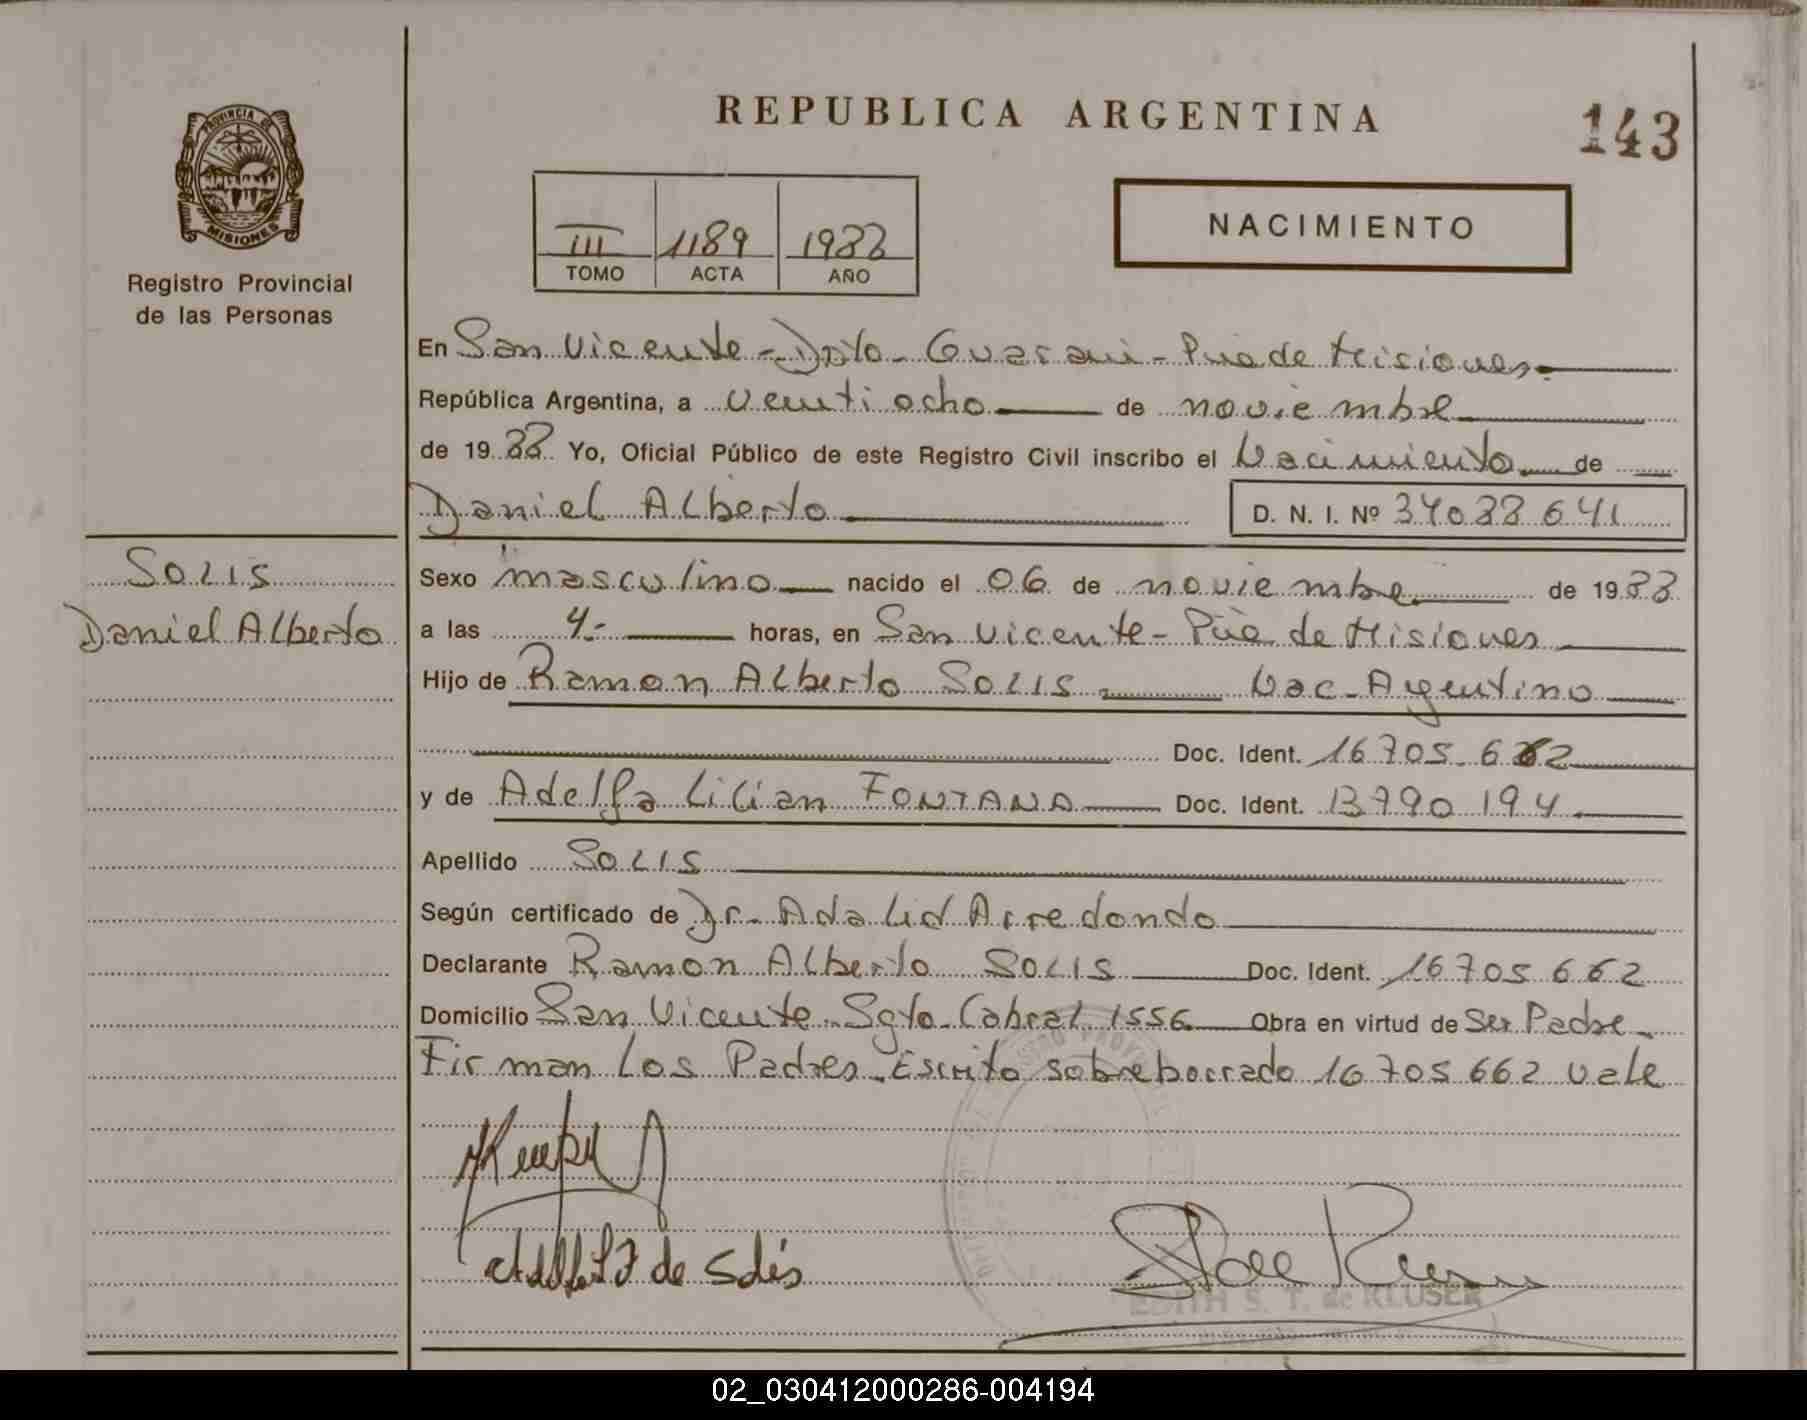 REPUBLICA ARGENTINA
143
PROVINCIA DE
MISIONES
Registro Provincial
de las Personas
III 1189 1988
TOMO ACTA AÑO
NACIMIENTO
En San Vicente - Dpto. Guarani - Pcia de Misiones
República Argentina, a veintiocho de noviembre
de 1988 Yo, Oficial Público de este Registro Civil inscribo el Nacimiento de
Daniel Alberto D. N. I. Nº 34088641
SOLIS
Daniel Alberto
Sexo masculino nacido el 06 de noviembre de 1988
a las 4.- horas, en San Vicente - Pcia de Misiones
Hijo de Ramon Alberto SOLIS Nac. Argentino
Doc. Ident. 16705.662
y de Adelfa Lilian FONTANA Doc. Ident. 13790194
Apellido SOLIS
Según certificado de Dr. Adalid Arredondo
Declarante Ramon Alberto SOLIS Doc. Ident. 16705662
Domicilio San Vicente - Sgto. Cabral 1556 Obra en virtud de Ser Padre.
Firman Los Padres. Escrito sobreborrado 16705662 vale
de Solis
EDITH S. T. de KLUSER
02_030412000286-004194